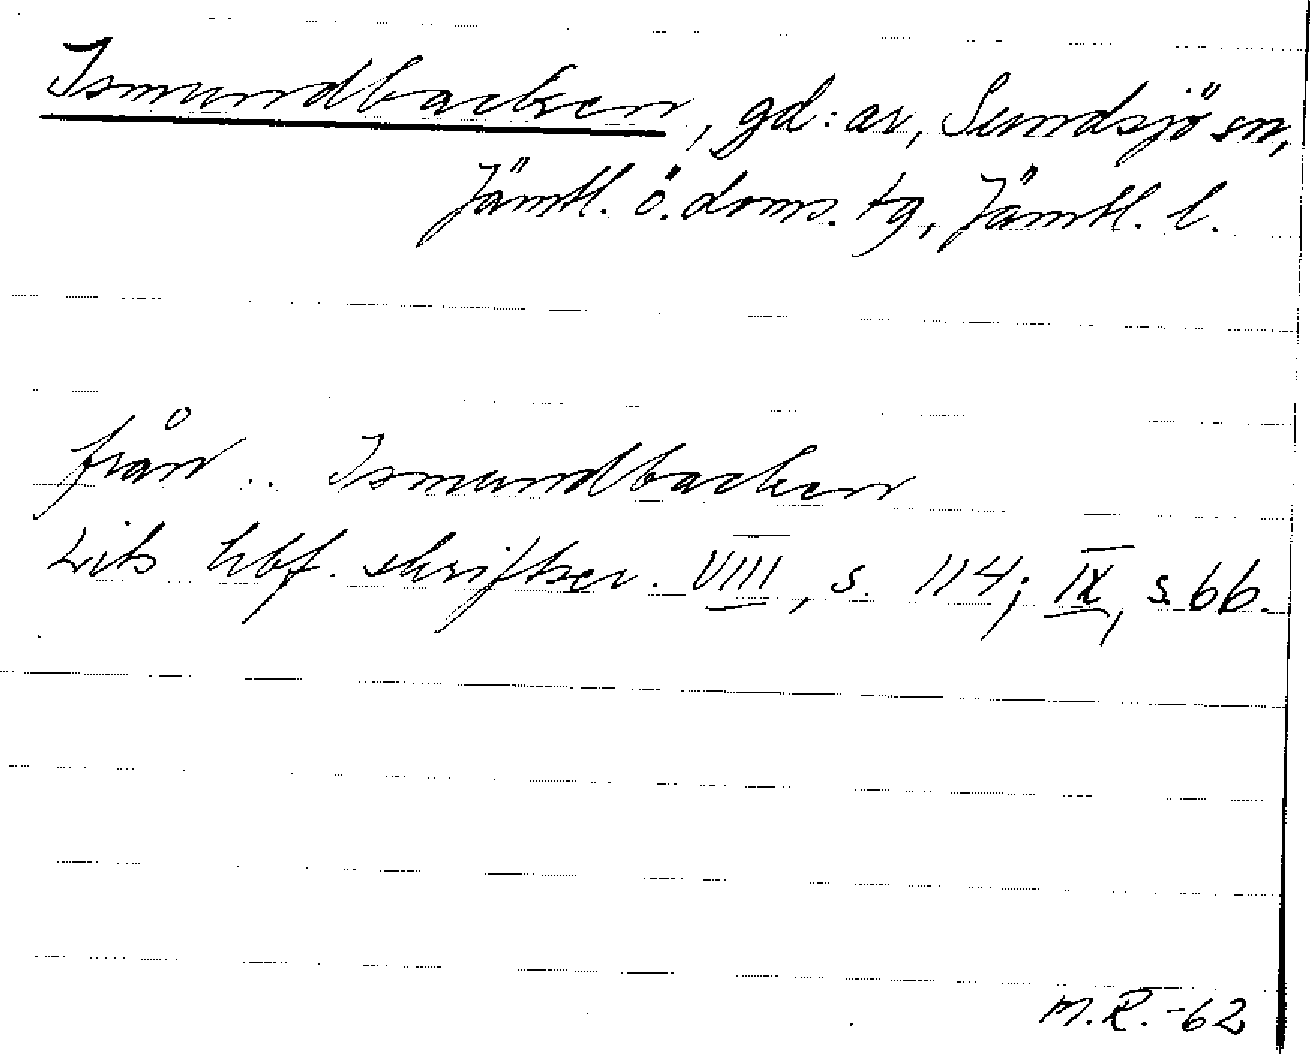 Ismundbacken, gd:ar, Sundsjö sn,
Jämtl. ö. doms. tg, Jämtl. l.
från .. Ismundbacken
hbf. skrifter. VIII, s. 114; IX, s. 66.
M.R.-62